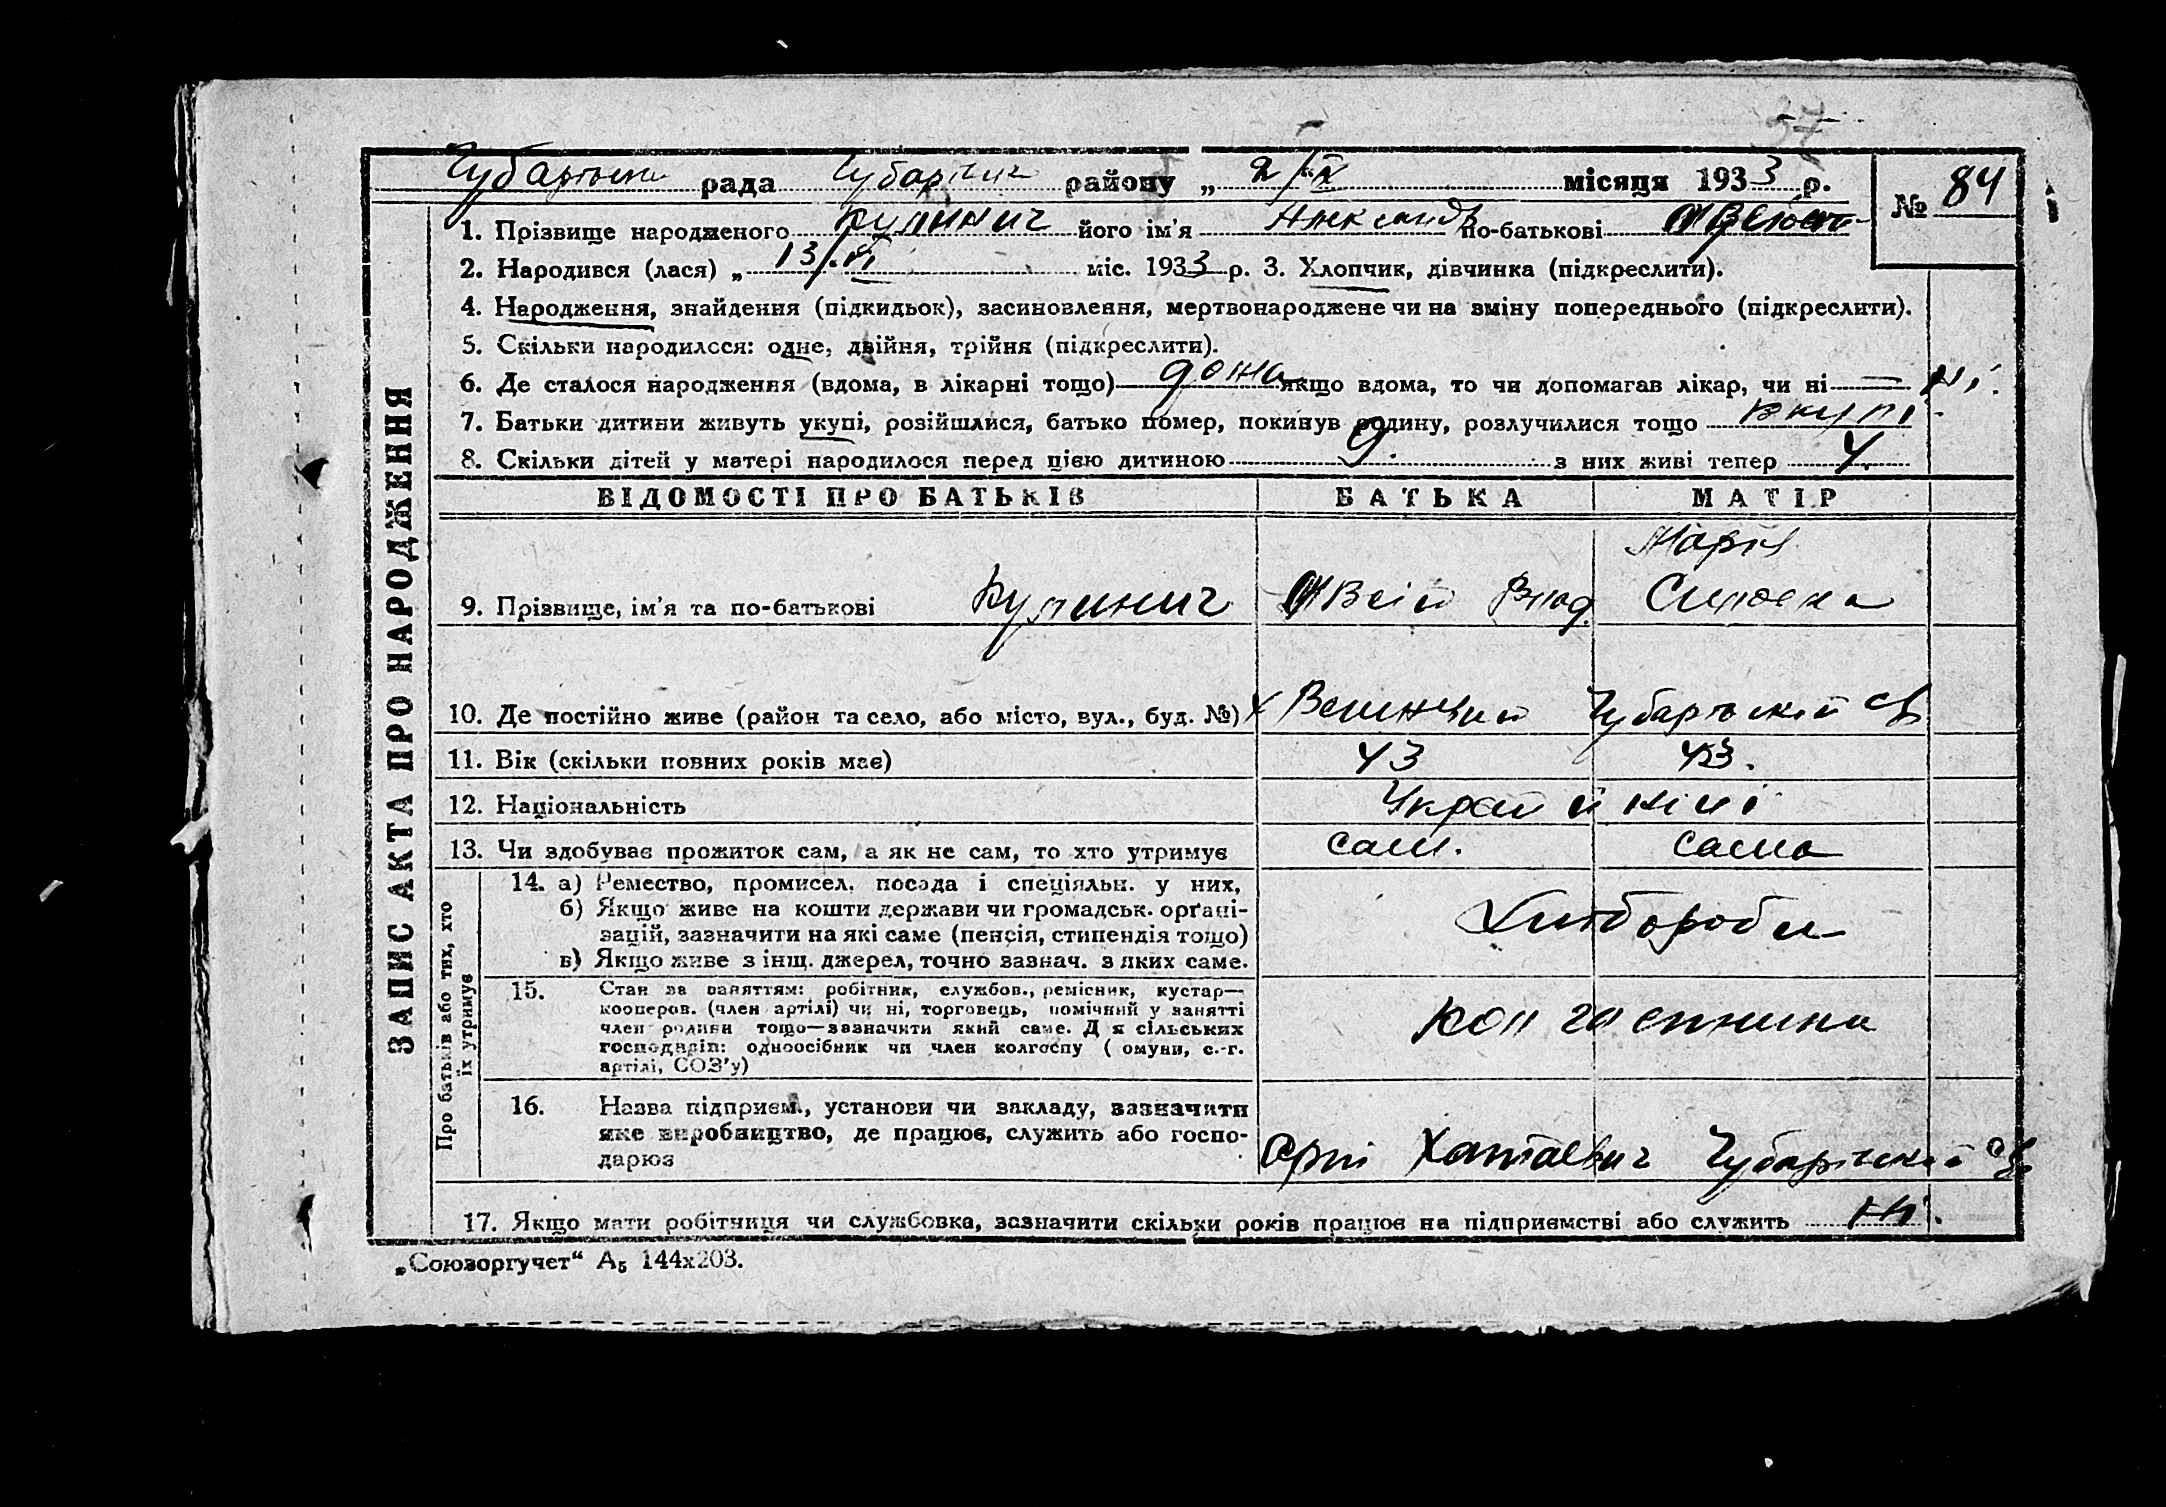 37
Чубарівська рада Чубарівск району „ 2/IX місяця 1933 р. № 84
1. Прізвище народженого Кулинич його ім'я Александр по-батькові
2. Народився (лася) „ 13/VI міс. 1933 р. 3. Хлопчик, дівчинка (підкреслити).
4. Народження, знайдення (підкидьок), засиновлення, мертвонароджене чи на зміну попереднього (підкреслити).
5. Скільки народилося: одне, двійня, трійня (підкреслити).
6. Де сталося народження (вдома, в лікарні тощо) дома якщо вдома, то чи допомагав лікар, чи ні — ні.
7. Батьки дитини живуть укупі, розійшлися, батько помер, покинув родину, розлучилися тощо вкупі.
8. Скільки дітей у матері народилося перед цією дитиною 9. з них живі тепер 4.
ВІДОМОСТІ ПРО БАТЬКІВ БАТЬКА МАТІР
Марія
9. Прізвище, ім'я та по-батькові Кулинич Овсій Влад.
10. Де постійно живе (район та село, або місто, вул., буд. №) х Чубарівский с/р
11. Вік (скільки повних років має) 43 43.
12. Національність Украйинці
13. Чи здобуває прожиток сам, а як не сам, то хто утримує сам. сама
14. а) Ремество, промисел, посада і спеціяльн. у них,
б) Якщо живе на кошти держави чи громадськ. орґані-
зацій, зазначити на які саме (пенсія, стипендія тощо)
в) Якщо живе з інш. джерел, точно зазнач. з яких саме.
Хлібороби
15. Стан за заняттям: робітник, службов., ремісник, кустар—
кооперов. (член артілі) чи ні, торговець, помічний у занятті
член родини тощо—зазначити який саме. Д я сільських
господарів: одноосібник чи член колгоспу ( омуни, с.-г.
артілі, СОЗ'у)
колгоспники
16. Назва підприєм., установи чи закладу, зазначити
яке виробництво, де працює, служить або госпо-
дарює
Артіль Хатаєвич Чубарівский с/р
17. Якщо мати робітниця чи службовка, зазначити скільки років працює на підприємстві або служить ні.
ЗАПИС АКТА ПРО НАРОДЖЕННЯ
Про батьків або тих, хто
їх утримує
„Союзоргучет“ А5 144х203.